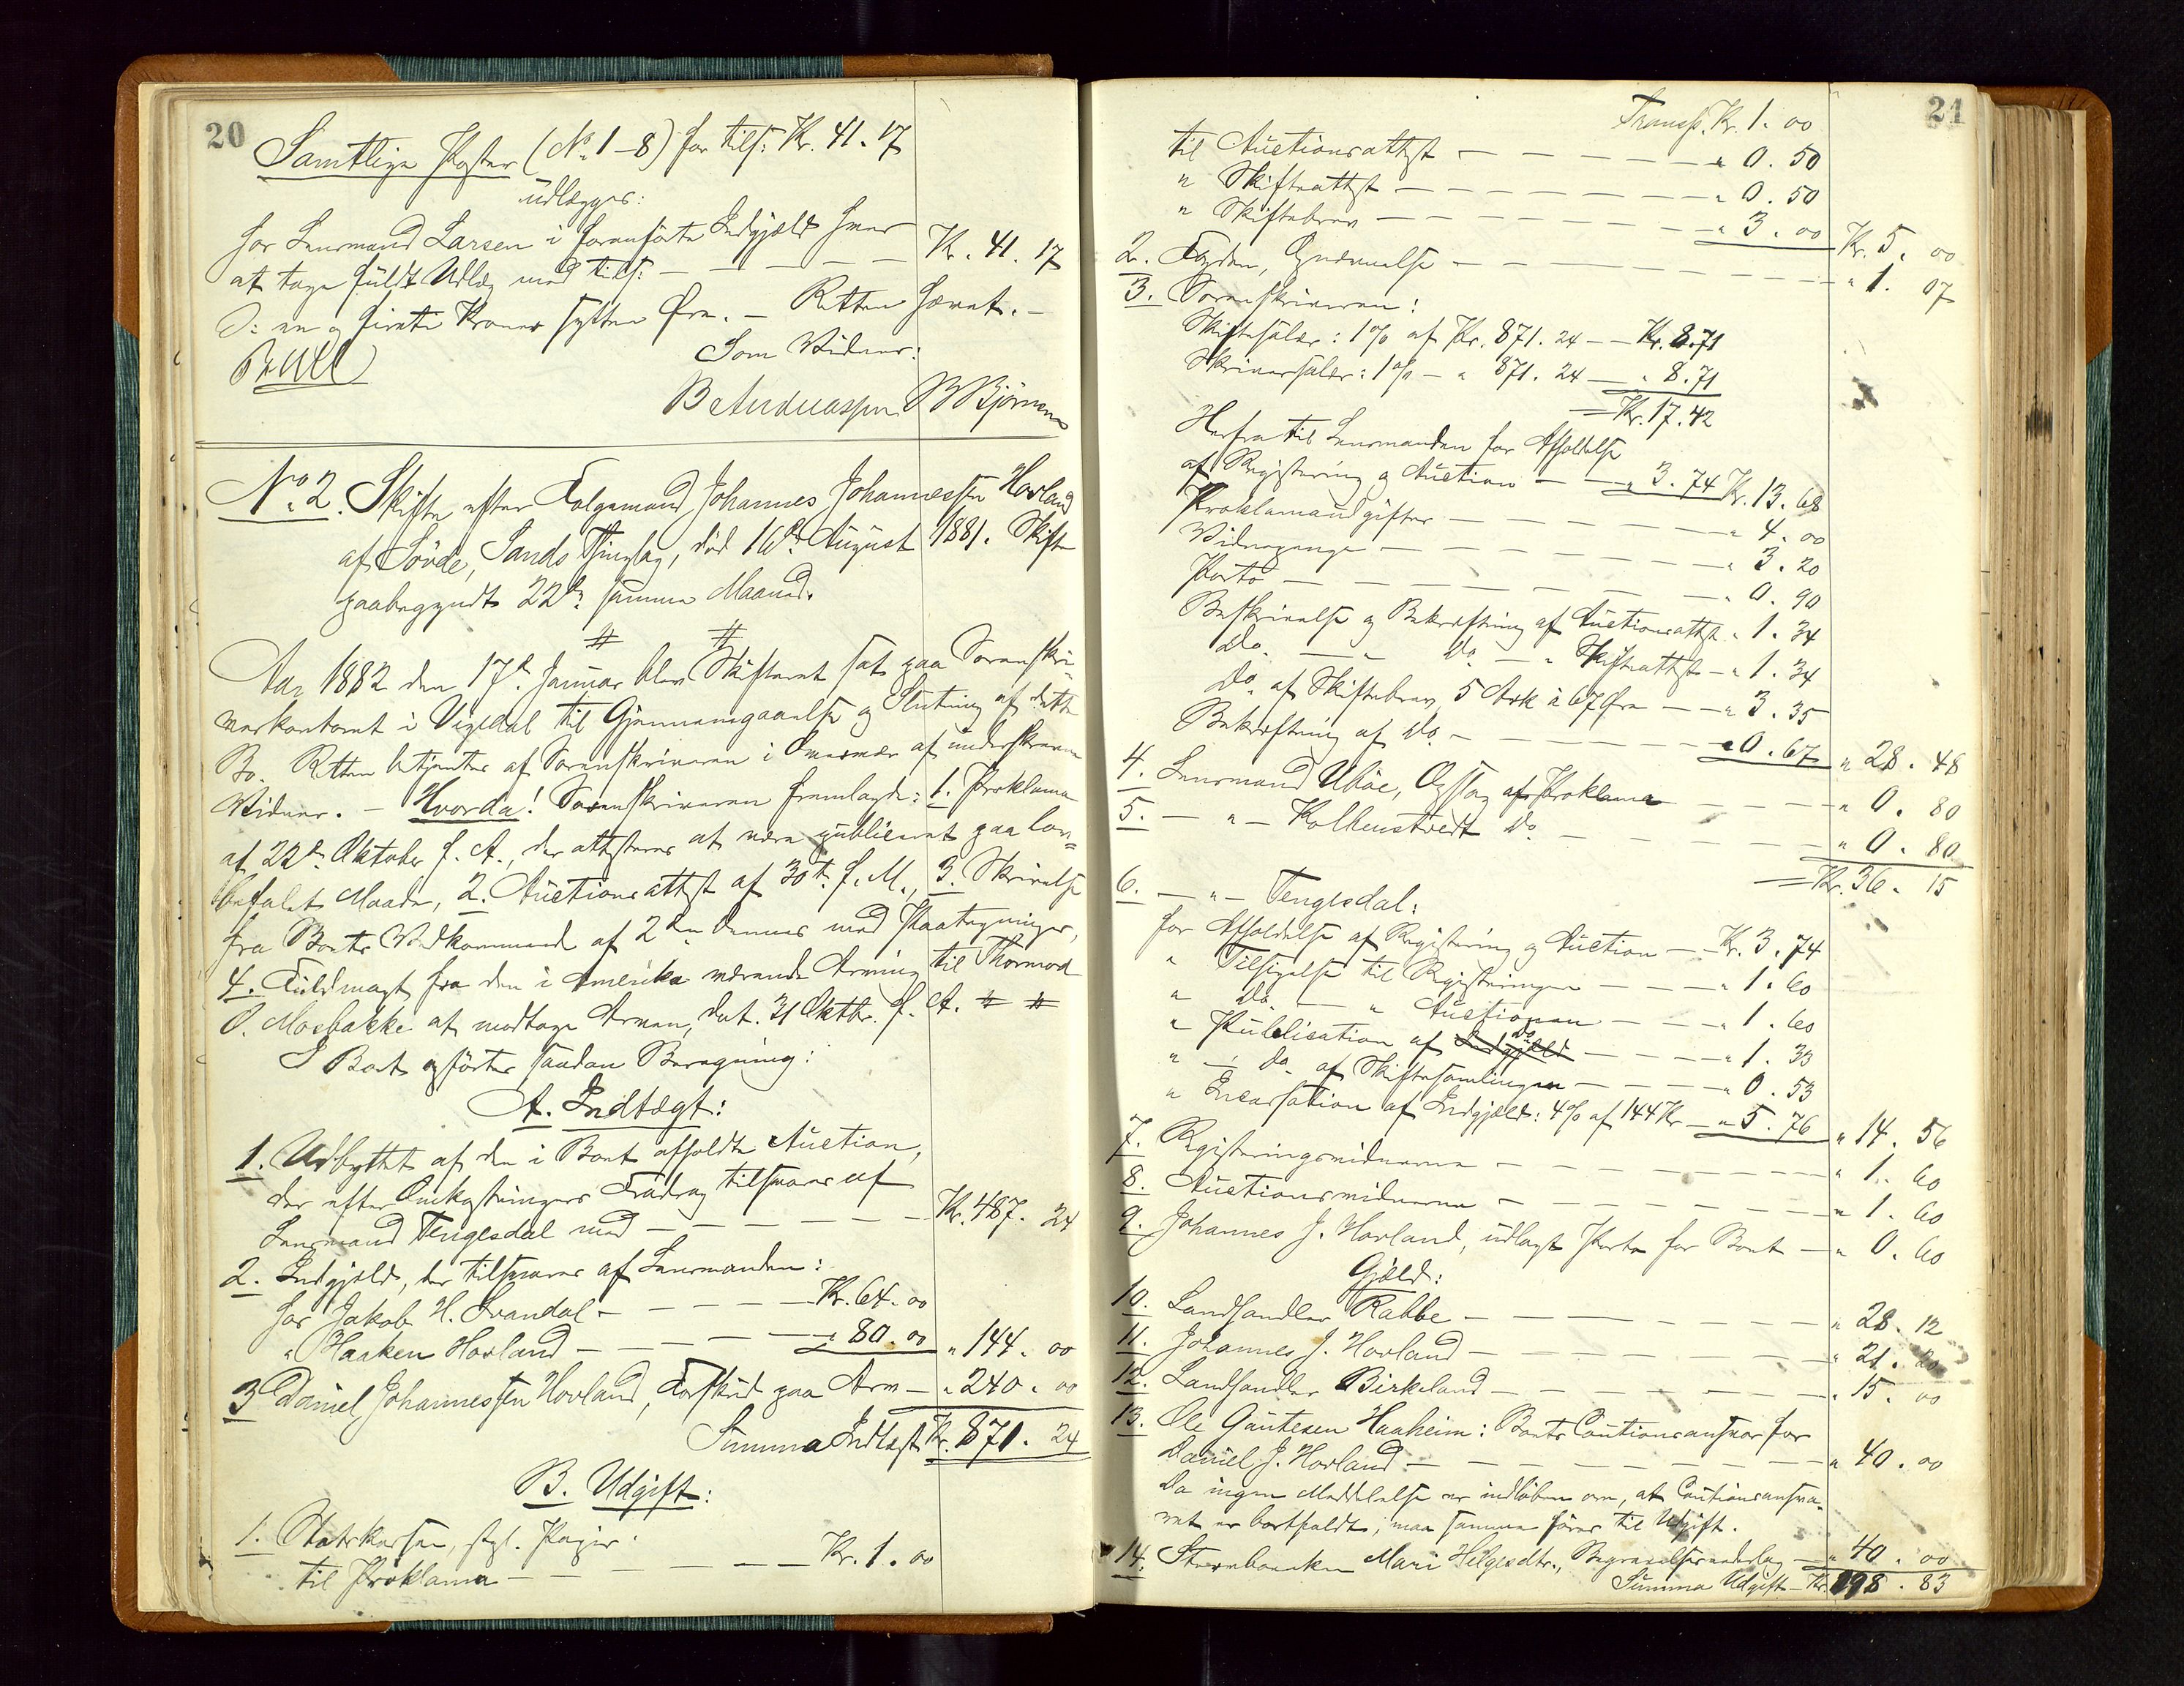 20
Samtlige Poster (No 1-8) for tils: Kr. 41.17
udlægges:
for Lensmand Larsen i foranførte Indgjæld hver
at tage fuldt Udlæg med tils: — — — — — Kr. 41.17
ɔ: en og firti Kroner sytten Øre. — Retten hævet. —
Bull
Som Vidner:
B Andreassen B Bjørnsen
No. 2. Skifte efter Folgemand Johannes Johannessen Hovland
af Søvde, Sands Thinglag, død 16de August 1881. Skifte
paabegyndt 22de samme Maaned.
# #
Aar 1882 den 17de Januar blev Skifteret sat paa Sorenskri-
verkontoret i Vigedal til Gjennemgaaelse og Slutning af dette
Bo. Retten betjentes af Sorenskriveren i Overvær af underskrevne
Vidner. — Hvorda! Sorenskriveren fremlagde: 1. Proklama
af 22de Oktober f. A., der attesteres at være publiceret paa lov=
befalet Maade, 2. Auctionsattest af 30te f. M., 3. Skrivelse
fra Boets Vedkommende af 2den dennes med Paategninger,
4. Fuldmagt fra den i Amerika værende Arving til Thormod
O. Mosbakke at modtage Arven, dat. 31 Oktbr. f. A. # #
I Boet opførtes saadan Beregning:
A. Indtægt:
1. Udbyttet af den i Boet afholdte Auction,
der efter Omkostningers Fradrag tilsvares af
Lensmand Tengesdal med — — — — — — Kr. 487. 24
2. Indgjæld, der tilsvares af Lensmanden:
for Jakob H. Svandal — — — — Kr. 64.00
" Haaken Hovland — — — — " 80.00 " 144. 00
3 Daniel Johannessen Hovland, Forskud paa Arv — " 240. 00
Summa Indtægt Kr. 871. 24
B. Udgift:
1. Statskassen, stpl. Papir:
til Proklama — — — — — Kr. 1.00
21
Transp. Kr. 1.00
til Auctionsattest — — — — — " 0.50
" Skifteattest — — — — — — " 0.50
" Skiftebrev — — — — — — " 3.00 Kr. 5. 00
2. Fogden, Opnævnelse — — — — — — — " 1. 07
3. Sorenskriveren:
Skiftesalær: 1% af Kr. 871.24 — — Kr. 8.71
Skriversalær: 1% — " 871.24 — " 8.71
= Kr. 17.42
Herfra til Lensmanden for Afholdelse
af Registrering og Auction — — " 3.74 Kr. 13.68
Proklamaudgifter — — — — — — " 4.00
Vidnepenge — — — — — — " 3.20
Porto — — — — — — — " 0.90
Beskrivelse og Bekræftning af Auctionsattest " 1.34
Do. — " Do. — " Skifteattest — " 1.34
Do. af Skiftebrev, 5 Ark à 67 Øre — — " 3.35
Bekræftning af Do. — — — — — " 0.67 " 28. 48
4. Lensmand Ubøe, Opslag af Proklama — — — — " 0. 80
5. — " — Kolbenstvedt Do. — — — — — " 0. 80
= Kr. 36. 15
6. — " — Tengesdal:
for Afholdelse af Registrering og Auction — Kr. 3.74
" Tilsigelse til Registreringen — — — " 1.60
" Do. — " Auctionen — — — " 1.60
" Publication af Indgjæld Do. — — — — " 1.33
" — : Do. af Skiftesamlingen — — — — " 0.53
" Incassation af Indgjæld: 4% af 144 Kr — " 5.76 " 14. 56
7. Registreringsvidnerne — — — — — — — " 1. 60
8. Auctionsvidnerne — — — — — — — " 1. 60
9. Johannes J. Hovland, udlagt Porto for Boet — " 0. 60
Gjæld:
10. Landhandler Rabbe — — — — — — — " 28. 12
11. Johannes J. Hovland — — — — — — " 21. 20
12. Landhandler Birkeland — — — — — — " 15. 00
13. Ole Gautesen Haaheim: Boets Cautionsansvar for
Daniel J. Hovland — — — — — — — " 40. 00
Da ingen Meddelelse er indløben om, at Cautionsansva-
ret er bortfaldt, maa samme føres til Udgift.
14. Stervboenken Mari Helgesdtr., Begravelsesvederlag — " 40. 00
Summa Udgift — Kr. 198. 83